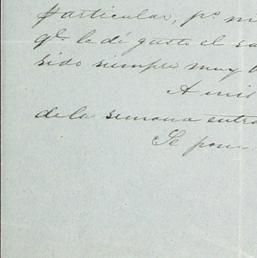 particular, pº m
qe le dé gusto el sa
sido siempre muy b
A mis
de la semana entra
Se pone